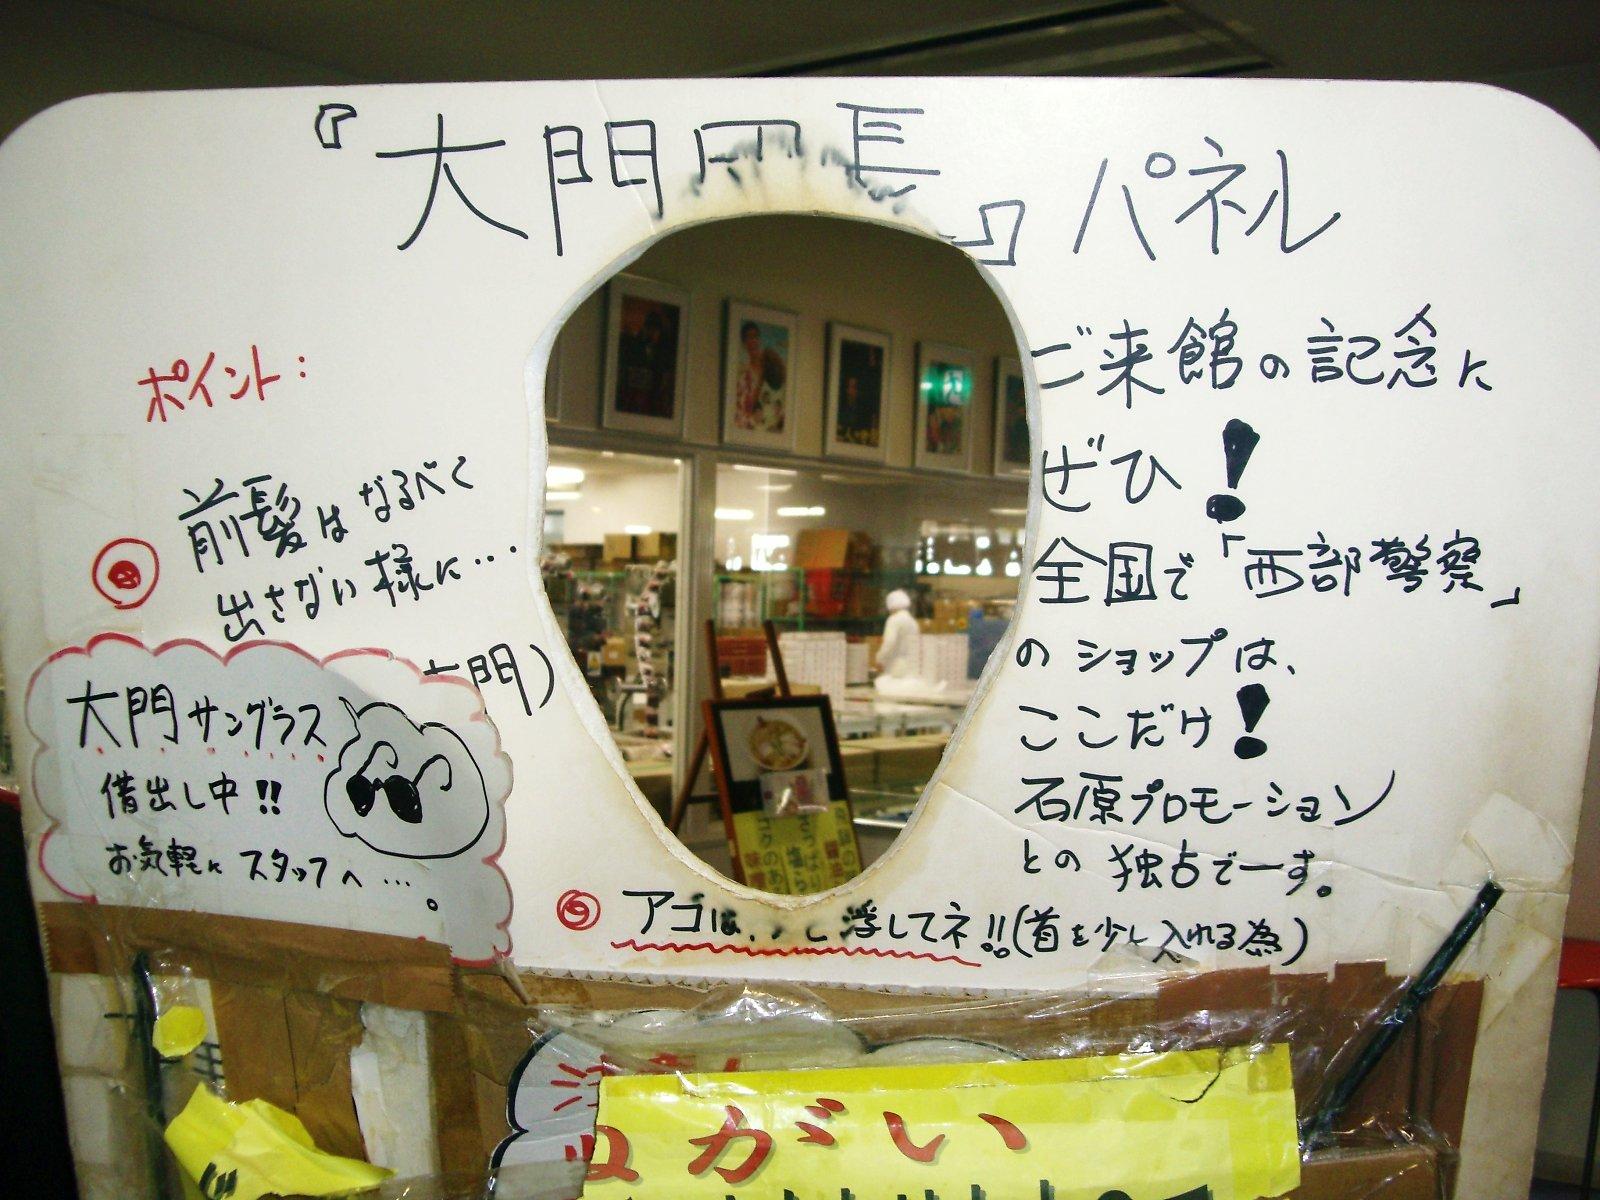 『大門団長』パネル
ポイント:
◎ 前髪はなるべく
出さない様に…
大門)
大門サングラス
借出し中!!
お気軽にスタッフへ…。
ご来館の記念に
ぜひ!
全国で「西部警察」
のショップは、
ここだけ!
石原プロモーション
との独占でーす。
◎ アゴは、 浮してネ!!(首を少し入れる為)
がい